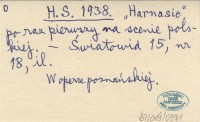 O
H.S. 1938. „Harnasie"
po raz pierwszy na scenie pols-
kiej. – Światowid 15, nr
18, il.
W operze poznańskiej.